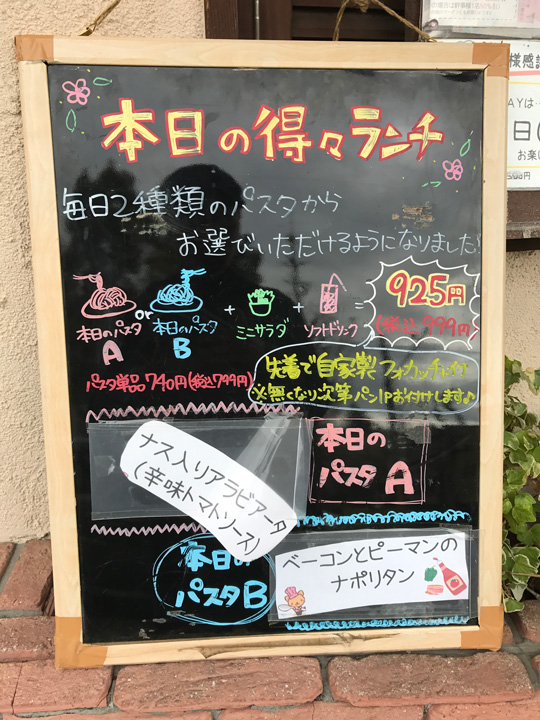 本日の得々ランチ
毎日2種類のパスタから
お選びいただけるようになりました!
本日のパスタ A
or
本日のパスタ B
+
ミニサラダ
+
ソフトドリンク
=
925円
(税込999円)
パスタ単品740円(税込799円)
先着で自家製フォカッチャ
※無くなり次第パン1Pお付けします♪
ナス入りアラビアータ
(辛味トマトソース)
本日の
パスタA
本日の
パスタB
ベーコンとピーマンの
ナポリタン